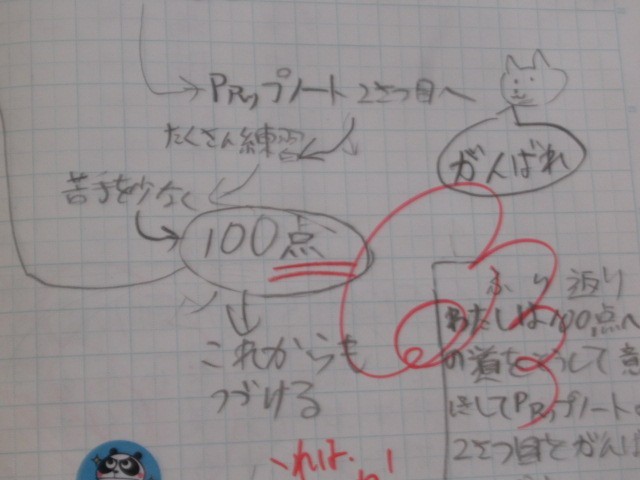 PRップノート 2さつ目へ
たくさん練習
がんばれ
苦手を少なく
100点
これからも
つづける
ふり返り
わたしは100点へ
の道を
してPRップノート
2さつ目をがんば